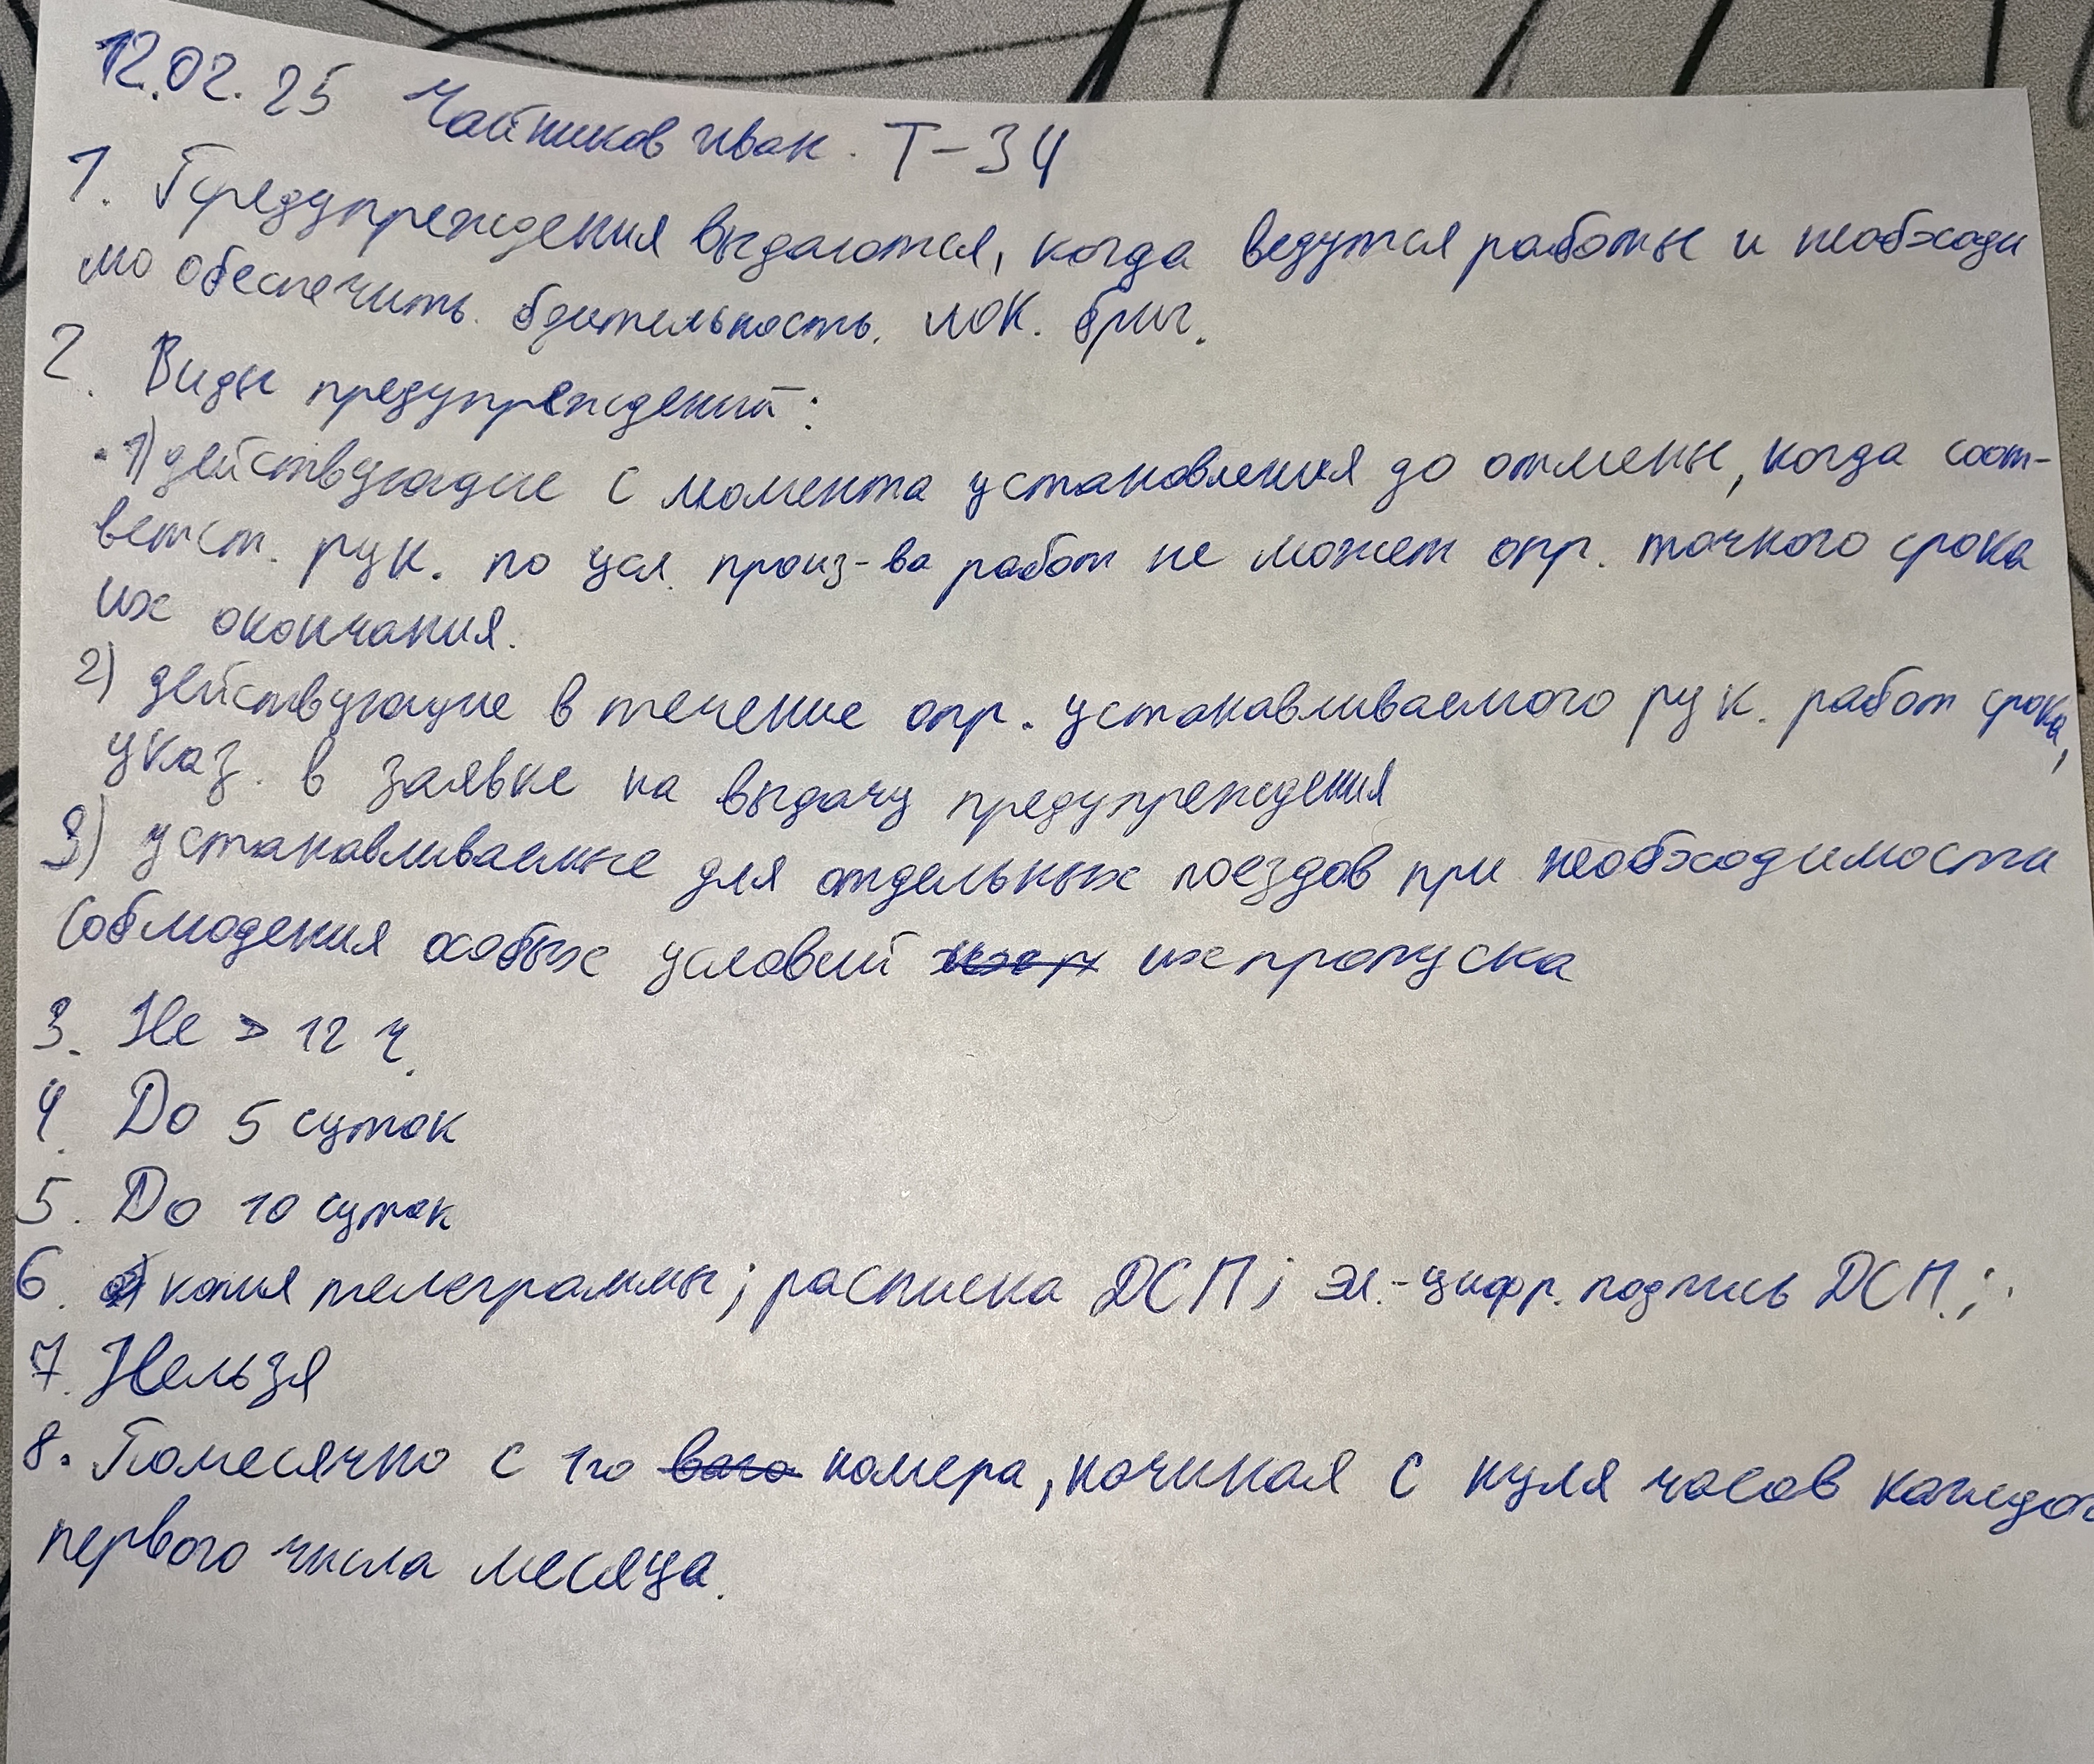 12.02.25 Чайников Иван. Т-34
1. Предупреждения выдаются, когда ведутся работы и необходи
мо обеспечить бдительность. лок. бриг.
2. Виды предупреждений:
1) действующие с момента установления до отмены, когда соот-
ветст. рук. по усл. произ-ва работ не может опр. точного срока
их окончания.
2) действующие в течение опр. устанавливаемого рук. работ срока,
указ. в заявке на выдачу предупреждения
3) устанавливаемые для отдельных поездов при необходимости
соблюдения особых условий их пропуска
3. Не > 12 ч.
4. До 5 суток
5. До 10 суток
6. копия телеграммы; расписка ДСП; эл.-цифр. подпись ДСП.;
7. Нельзя
8. Помесячно с 1го номера, начиная с нуля часов каждог
первого числа месяца.